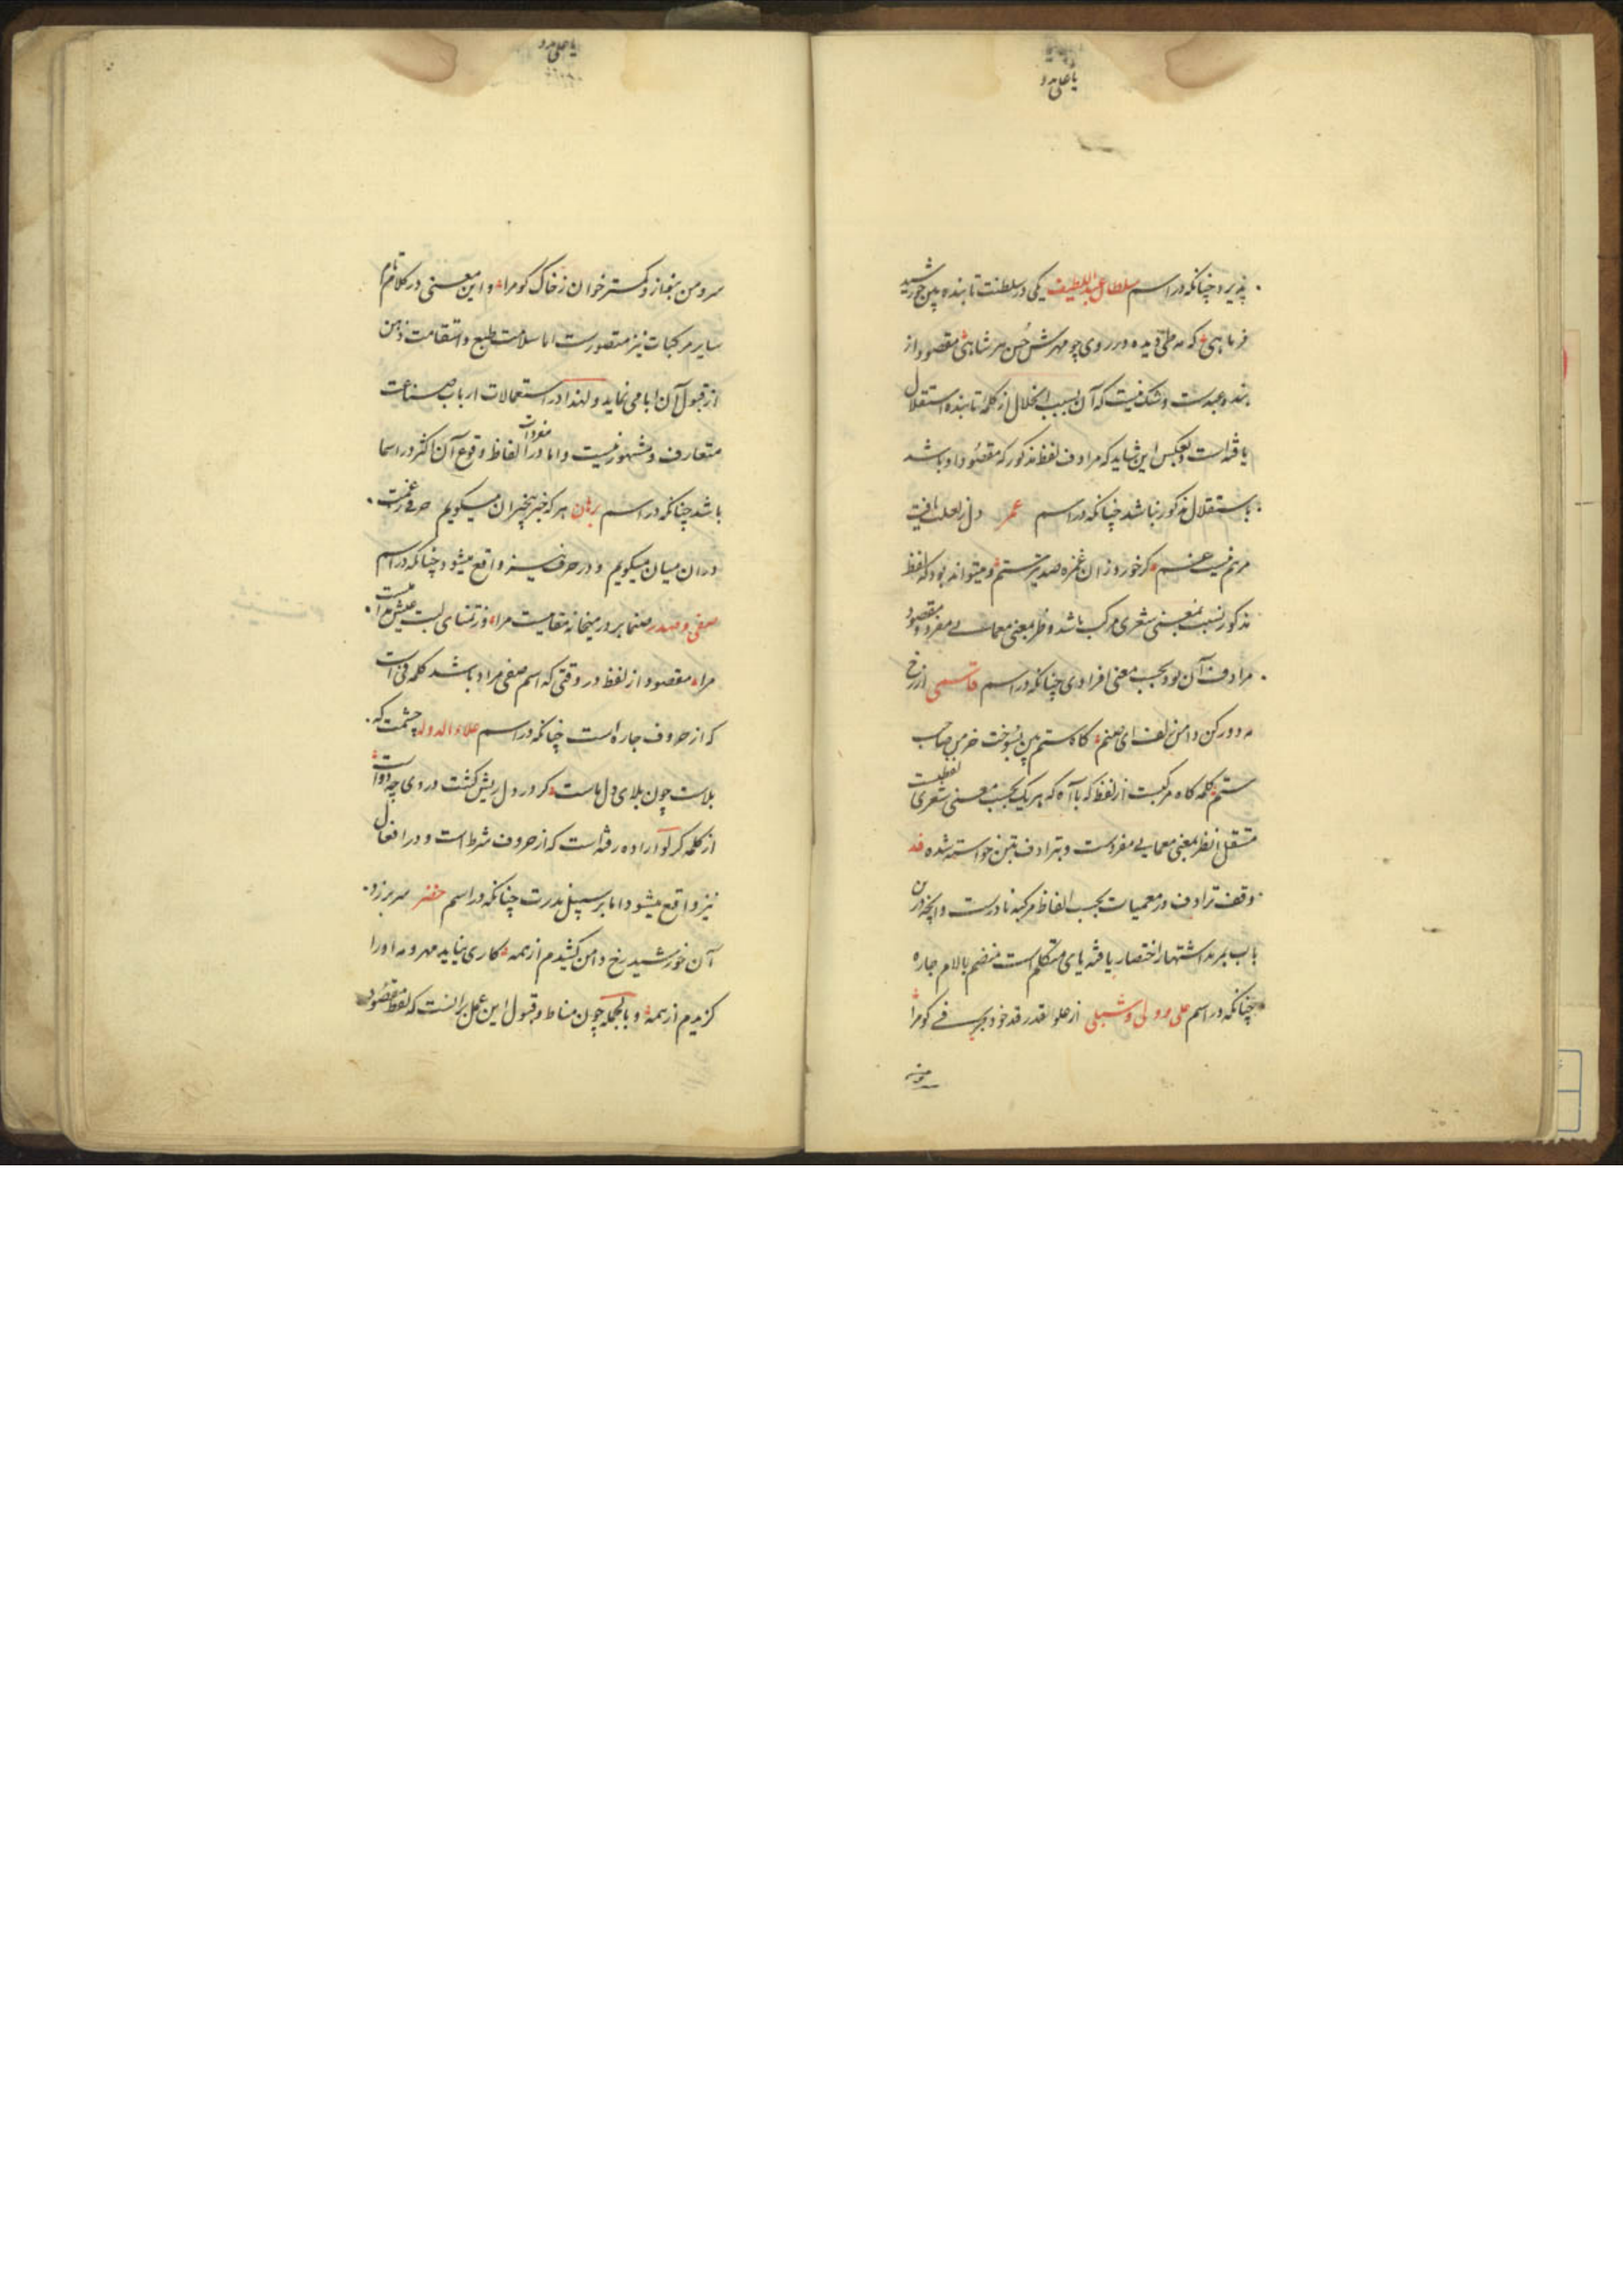 یا علی مدد
پذیرد چنانکه در اسم سلطان عبداللطیف یکی در سلطنت تابنده بین خورشید
فر ماهی که مه طی دیده در روی چو مهرش حسن هر شاهی مقصود از
بنده عبدست و شک نیست که آن بسبب انحلال از کلمه تابنده استقلال
یافته است و بعکس این شاید که مرادف لفظ مذکور که مقصود او باشد
باستقلال مذکور نباشد چنانکه در اسم عمر دل ز لعلت یافت
مرهم نیست غم گر خورد زان غمزه صد تیر ستم و میتواند بود که لفظ
مذکور نسبت بمعنی شعری مرکب باشد و نظر بمعنی معمایی مفرد و مقصود
مرادف آن بود بحسب معنی افرادی چنانکه در اسم قاسمی از رخ
مه دور کن دامن زلف ای صنم کاه ستم بین بسوخت خرمن صاحب
ستم کلمه کاه مرکبست از لفظ که با آه که هر یک بحسب معنی شعری لفظیست
مستقل اما نظر بمعنی معمایی مفردست و بترادف تبن خواسته شده قد
وقف ترادف در معمیات بحسب الفاظ مرکبه نادرست و آنچه درین
باب بمزید اشتهار اختصار یافته یای متکلم است منضم بالام جاره
چنانکه در اسم علی و ولی و شبلی از علو القدر قد خود بری فی کو مرا
سرو من
یا علی مدد
سرو من بنماز و کمتر خوان ز خاک کو مرا و این معنی در کلام تام
سایر مرکبات نیز متصورست اما سلامت طبع و استقامت ذهن
از قبول آن ابا می نماید و لهذا در استعمالات ارباب صناعت
متعارف و مشهور نیست و اما در مفردات الفاظ وقوع آن اکثر در اسما
باشد چنانکه در اسم برهان هر که خبر بیخبران میگویم حرفی ز غمت
در آن میان میگویم و در حرف نیز واقع میشود چنانکه در اسم
صفی و صفدر صنما بر در میخانه مقامیست مرا وز تمنای لبت عیش مدامیست
مرا مقصود از لفظ در وقتی که اسم صفی مراد باشد کلمه فی است
که از حروف جاره است چنانکه در اسم علاء الدوله چشمت که
بلاست چون بلای دل ماست گر در دل ریش گشت در وی چه دواست
از کلمه گر لو اراده رفته است که از حروف شرط است و در افعال
نیز واقع میشود اما بر سبیل ندرت چنانکه در اسم خضر سر برزد
آن خورشید رخ دامن کشیدم از همه کاری نیاید مهر و مه او را
گزیدم از همه و بالجمله چون مناط و قبول این عمل بر آنست که لفظ مقصود